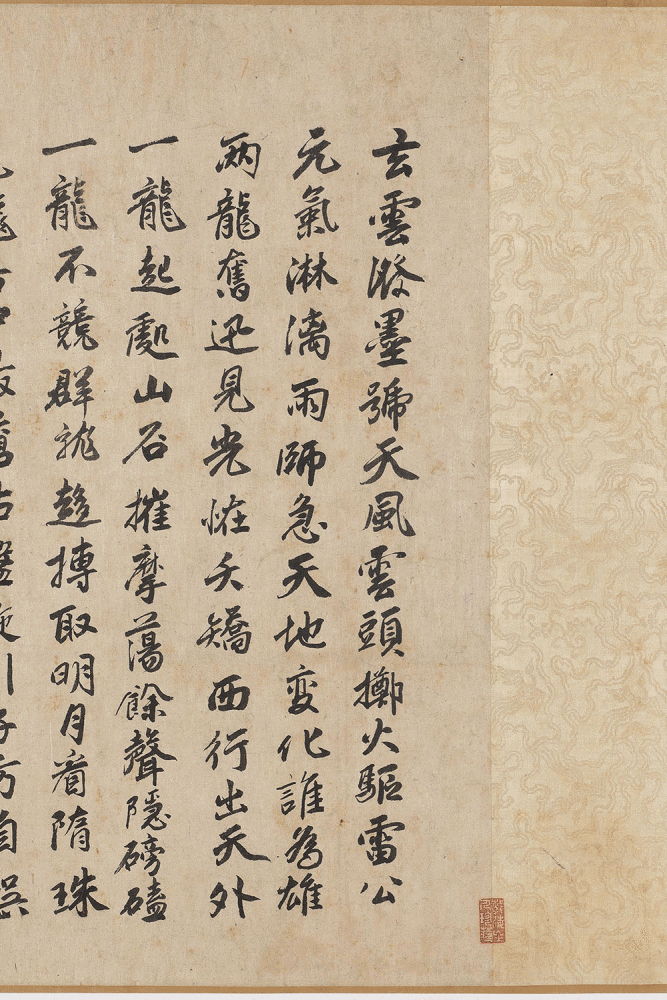 玄雲潑墨號天風雲頭擲火驅雷公
元氣淋漓雨師急天地變化誰為雄
兩龍奮迅見光怪夭矯西行出天外
一龍起處山谷摧摩蕩餘聲隱磅磕
一龍不競群龍趨搏取明月看隋珠